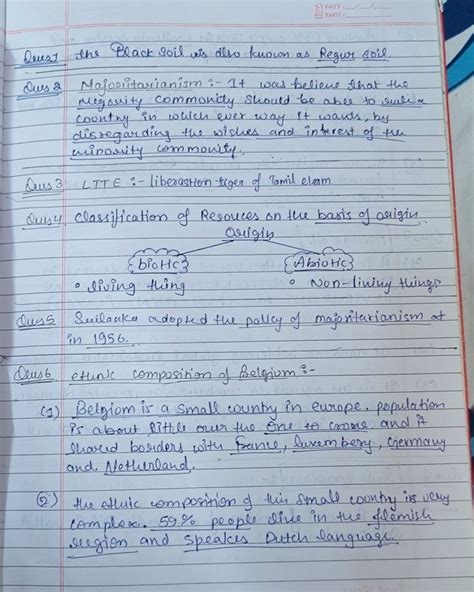 DATE: __/__/__
PAGE:
Ques1 the Black soil is also known as Regur soil.
Ques 2 Majoritarianism :- It was believe that the
Megosity commonity should be abee to rule a
coontry in which ever way It wants, by
disregarding the wishes and interest of the
minority commonity.
Ques 3 LTTE :- liberastion tiger of Tamil elam.
Ques 4 Classification of Resouces on the basis of origin
Origin
biotic Abiotic
• living thing • Non-living things
Ques 5 Srilanka adopted the policy of majoritarianism at
in 1956.
Ques 6 ethnic composition of Belgium :-
(1) Belgiom is a small country in europe. population
is about little over the one to crore and it
shared borders with France, luxembery, Germany
and Netherland.
(2) the ethnic composition of this small coontry is very
complex. 59% people live in the flemish
region and speakes Dutch language.